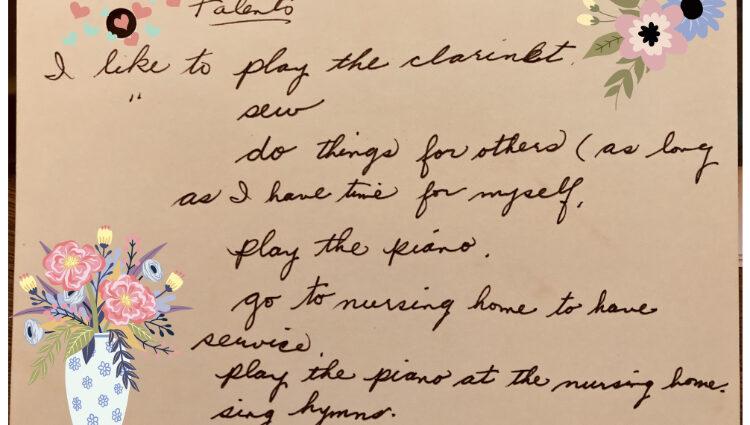 Talents
I like to play the clarinet.
" sew
do things for others (as long
as I have time for myself,
play the piano.
go to nursing home to have
service.
play the piano at the nursing home.
sing hymns.